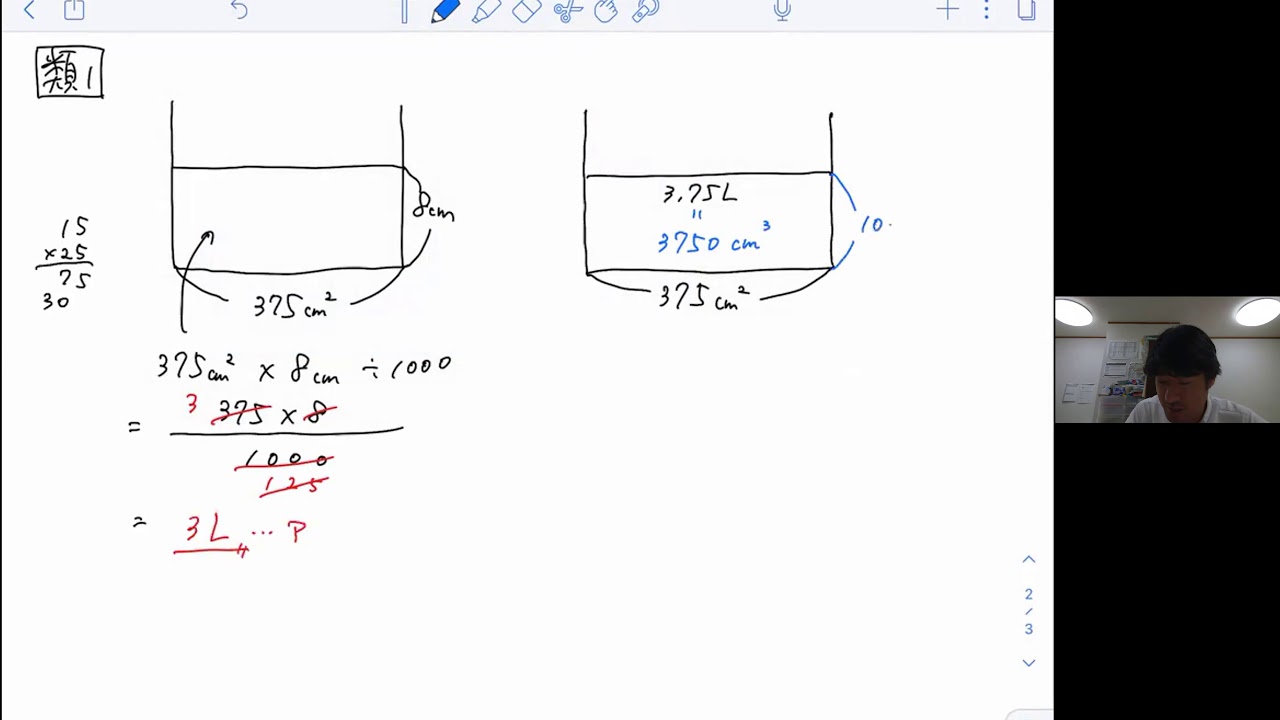 類1
15
×25
75
30
8cm
375cm²
375cm² × 8cm ÷1000
3 375 × 8
=
1000
125
= 3L … ア
3.75L
=
3750 cm³
10.
375cm²
2
/
3